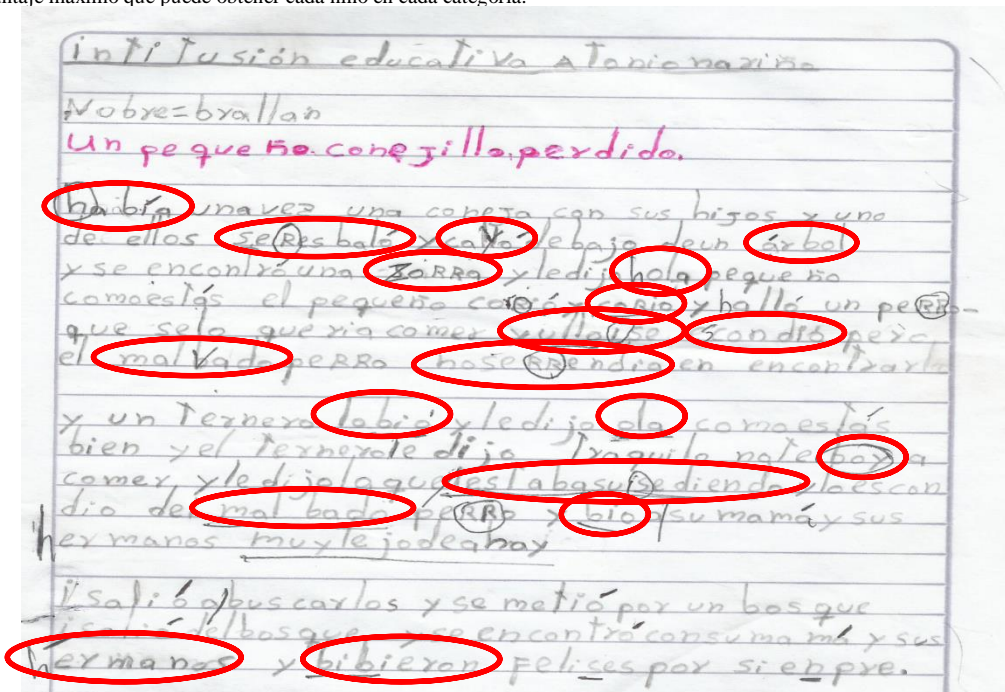 ntaje máximo que puede obtener cada niño en cada categoría.
intiTusión educatiVa ATonio nariño
Nobre=brallan
un pequeño conejillo perdido.
había unavez una coneja con sus hijos y uno
de ellos seResbaló y cayó debajo deun árbol
y se encontróuna zoRRa yledijo hola pequeño
comoestás el pequeño corió y corio y halló un peRRo
que selo queria comer yullo se scondió pero
el malvado peRRo nose RRendia en encontrarlo
y un Ternero lobió yledijo ola comoestás
bien yel Ternerole dijo Traquilo nate boy a
comer yledijolo que leestabasusediendo yloescon
dio del mal bado peRRo y bio su mamá y sus
hermanos muylejodeahay
i salió a buscarlos y se metió por un bosque
isalió delbosque y se encontró consuma má y sus
hermanos y bibieron Felices por sienpre.